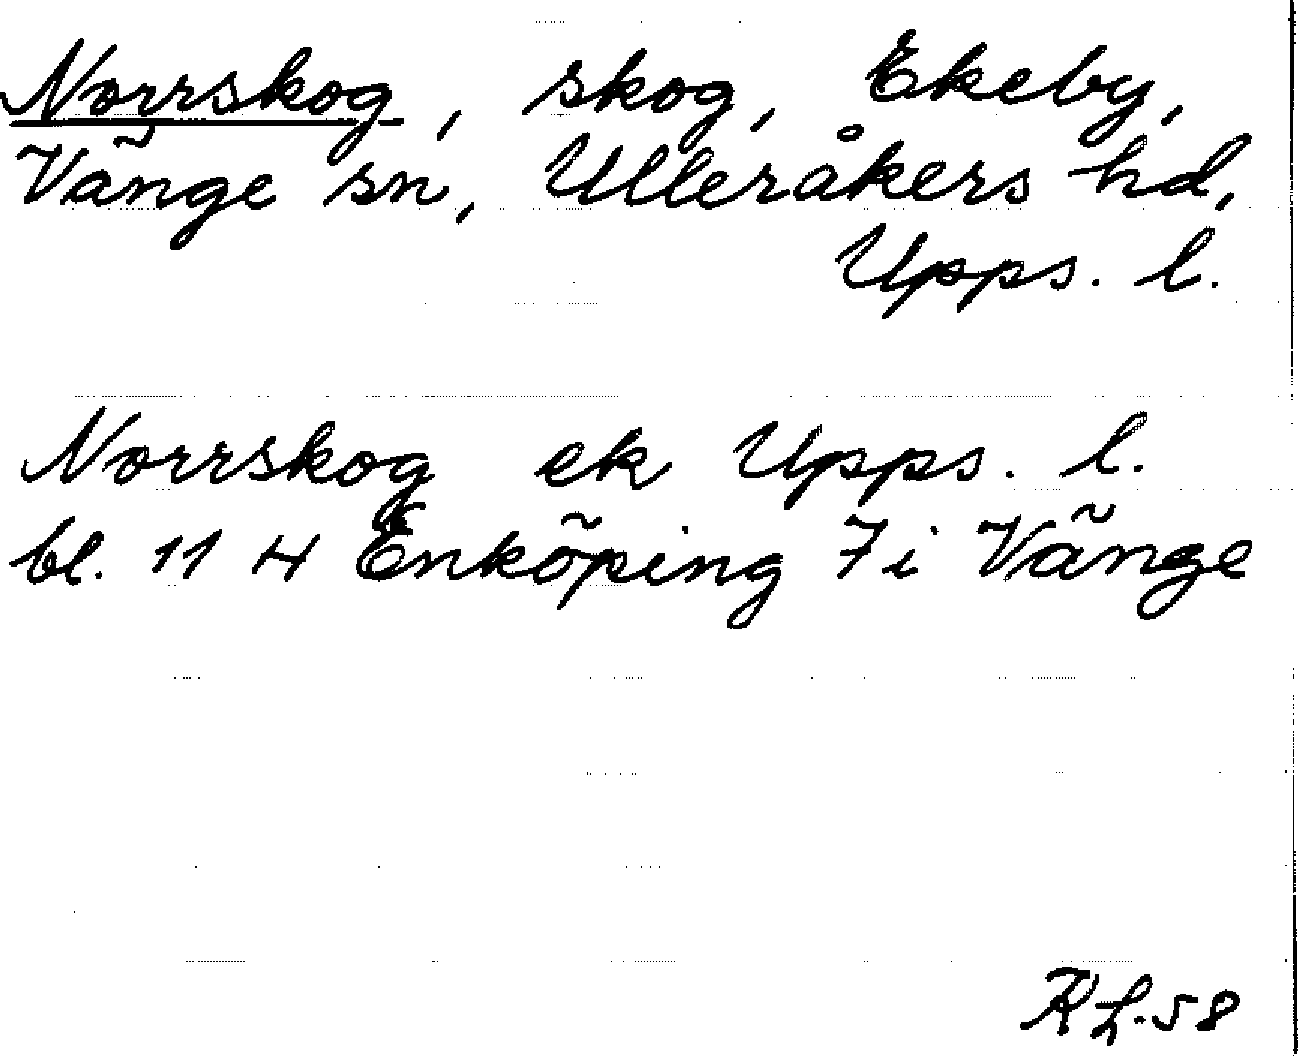 Norrskog, skog, Ekeby,
Vänge sn, Ulleråkers hd,
Upps. l.
Norrskog ek Upps. l.
bl. 11 H Enköping 7 i Vänge
RL. 58